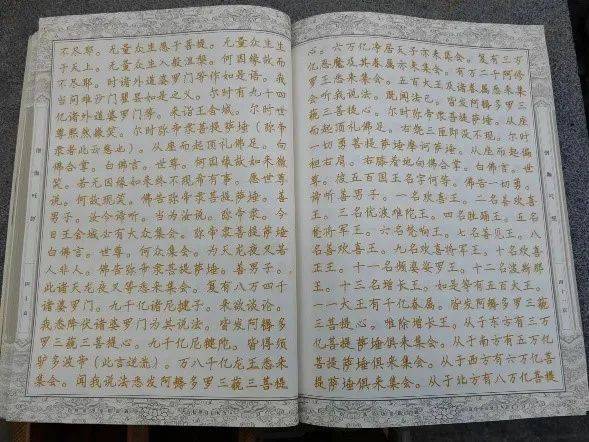 不尽耶。无量众生愿于菩提。无量众生生
于天上。无量众生入般涅槃。何因缘故而
不尽耶。时诸外道婆罗门等作如是语。我
当问难沙门瞿昙如是之义。尔时有九十四
亿诸外道婆罗门等。来诣王舍城。尔时世
尊熙然微笑。尔时弥帝隶菩提萨埵（弥帝
隶者此云慈也）。从座而起顶礼佛足。向
佛合掌。白佛言。世尊。何因缘故如来微
笑。若无因缘如来终不现希有事。愿世尊
说。何故现笑。佛告弥帝隶菩提萨埵。善
男子。汝今谛听。当为汝说。弥帝隶。今
日王舍城必有大众集会。弥帝隶菩提萨埵
白佛言。世尊。何众集会。为天龙夜叉若
人非人。佛告弥帝隶菩提萨埵。善男子。
此诸天龙夜叉等悉来集会。复有八万四千
诸婆罗门。九千亿诸尼揵子。来欲谈论。
我悉降伏诸婆罗门为其说法。皆发阿耨多
罗三藐三菩提心。九千亿尼揵陀。皆得须
驴多波帝（此言逆流）。万八千亿龙王悉来
集会。闻我说法悉发阿耨多罗三藐三菩提
僧伽吒经
心。六万亿净居天子亦来集会。复有三万
亿恶魔及其眷属亦来集会。有万二千阿修
罗王悉来集会。五百大王及诸眷属悉来集
会听我说法。既闻法已。皆发阿耨多罗三
藐三菩提心。尔时弥帝隶菩提萨埵。从座
而起顶礼佛足。右绕三匝即没不现。尔时
一切勇菩提萨埵摩诃萨埵。从座而起偏
袒右肩。右膝着地向佛合掌。白佛言。世
尊。彼五百国王名字何等。佛告一切勇。
谛听善男子。一名欢喜王。二名善欢喜
王。三名优波难陀王。四名胜踊王。五名
梵将军王。六名梵响王。七名善见王。八
名善欢喜王。九名欢喜将军王。十名欢喜
正王。十一名频婆娑罗王。十二名波斯那
王。十三名增长王。如是等有五百大王。
一一大王有千亿眷属。皆发阿耨多罗三藐
三菩提心。惟除增长王。从于东方有三万
亿菩提萨埵俱来集会。从于南方有五万亿
菩提萨埵俱来集会。从于西方有六万亿菩
提萨埵俱来集会。从于北方有八万亿菩提
僧伽吒经